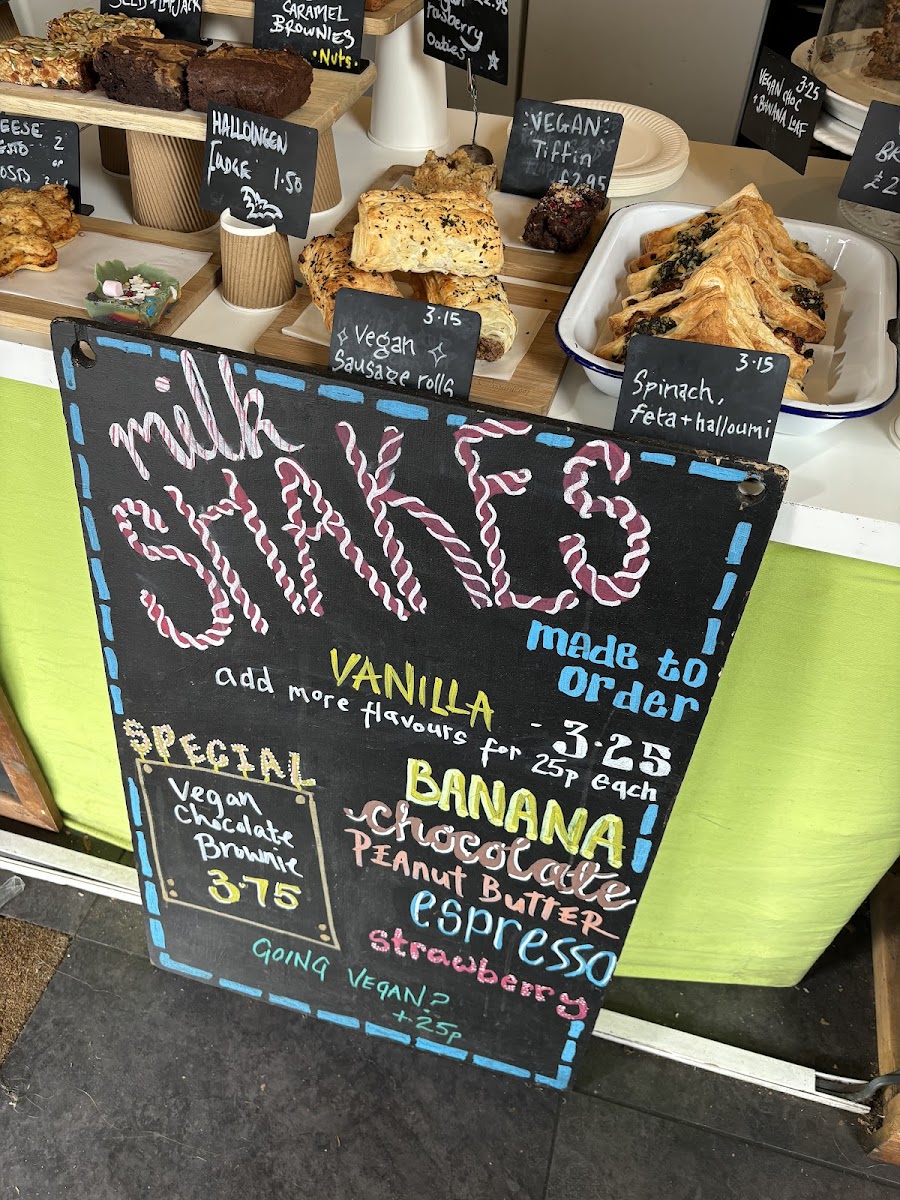 CARAMEL
BROWNIES
·Nuts·
2.95
rasberry
Oaties
VEGAN CHOC 3.25
+ BANANA LOAF
£2
HALLOWEEN
fudge 1.50
:VEGAN:
Tiffin
£2.95
2
3.15
Vegan
Sausage rolls
3.15
Spinach,
feta + halloumi
milk
SHAKES
made to
order
VANILLA - 3.25
add more flavours for 25p each
SPECIAL
Vegan
Chocolate
Brownie
3.75
BANANA
chocolate
PEAnut BuTTER
espresso
strawberry
GOING VEGAN?
+25p